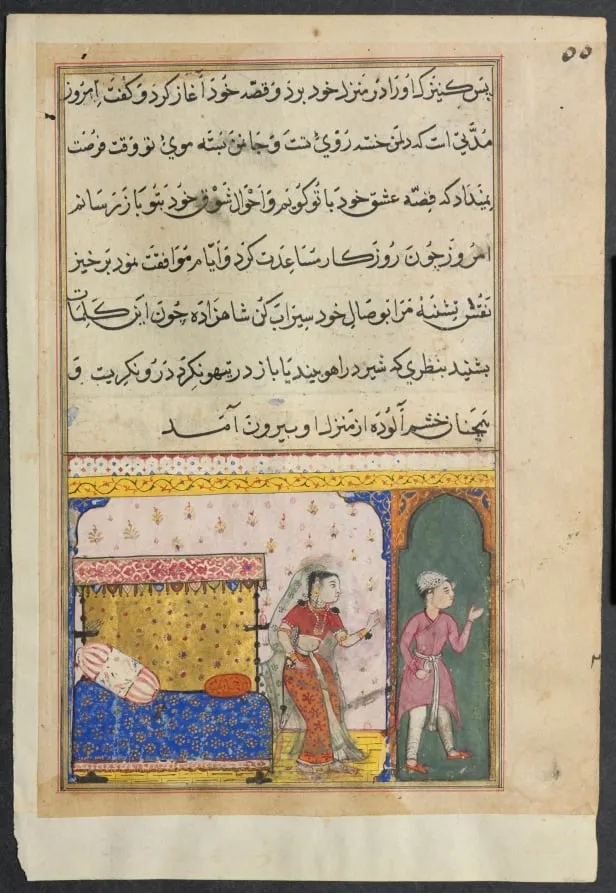 ۵۵
پس کنیزک او را در منزل خود برد و قصه خود آغاز کرد و کفت امروز
مدتی است که دلمن خسته روی تست و جانمن بسته موی تو وقت فرصت
نمیداد که قصه عشق خود با تو کویم و احوال شوق خود بتو باز رسانم
امروز چون روزکار مساعدت کرد و ایام موافقت نمود برخیز
نفس تشنه مرا بوصال خود سیراب کن شاهزاده چون این کلمات
بشنید بنظری که شیر در اهو بیند یا باز در تیهو نکرد درو نکریست و
همچنان خشم آلوده از منزل او بیرون آمد